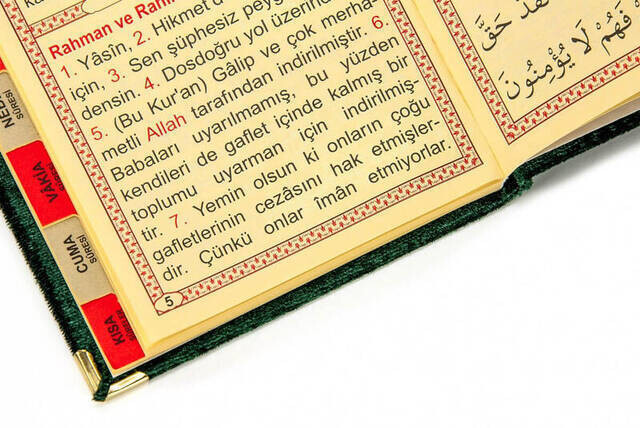 Rahman ve
1. Yâsîn, 2. Hikmet'
için, 3. Sen şüphesiz
densin. 4. Dosdoğru yol üzerin
5. (Bu Kur'an) Gâlip ve çok merha-
metli Allah tarafından indirilmiştir. 6.
Babaları uyarılmamış, bu yüzden
kendileri de gaflet içinde kalmış bir
toplumu uyarman için indirilmiş-
tir. 7. Yemin olsun ki onların çoğu
gafletlerinin cezâsını hak etmişler-
dir. Çünkü onlar îmân etmiyorlar.
5
حَقَّ
فَهُمْ لَا يُؤْمِنُونَ
VÂKIA
SÛRESİ
CUMA
SÛRESİ
KISA
SÛRELER